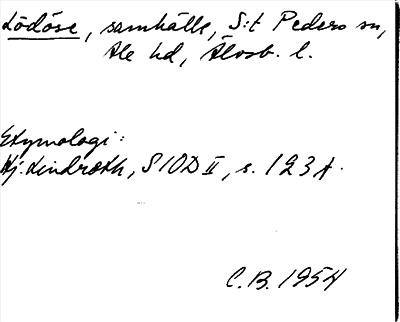 Lödöse, samhälle, S:t Peders sn,
Ale hd, Älvsb. l.
Etymologi:
Hj. Lindroth, SIOD II, s. 123 f.
C.B. 1954